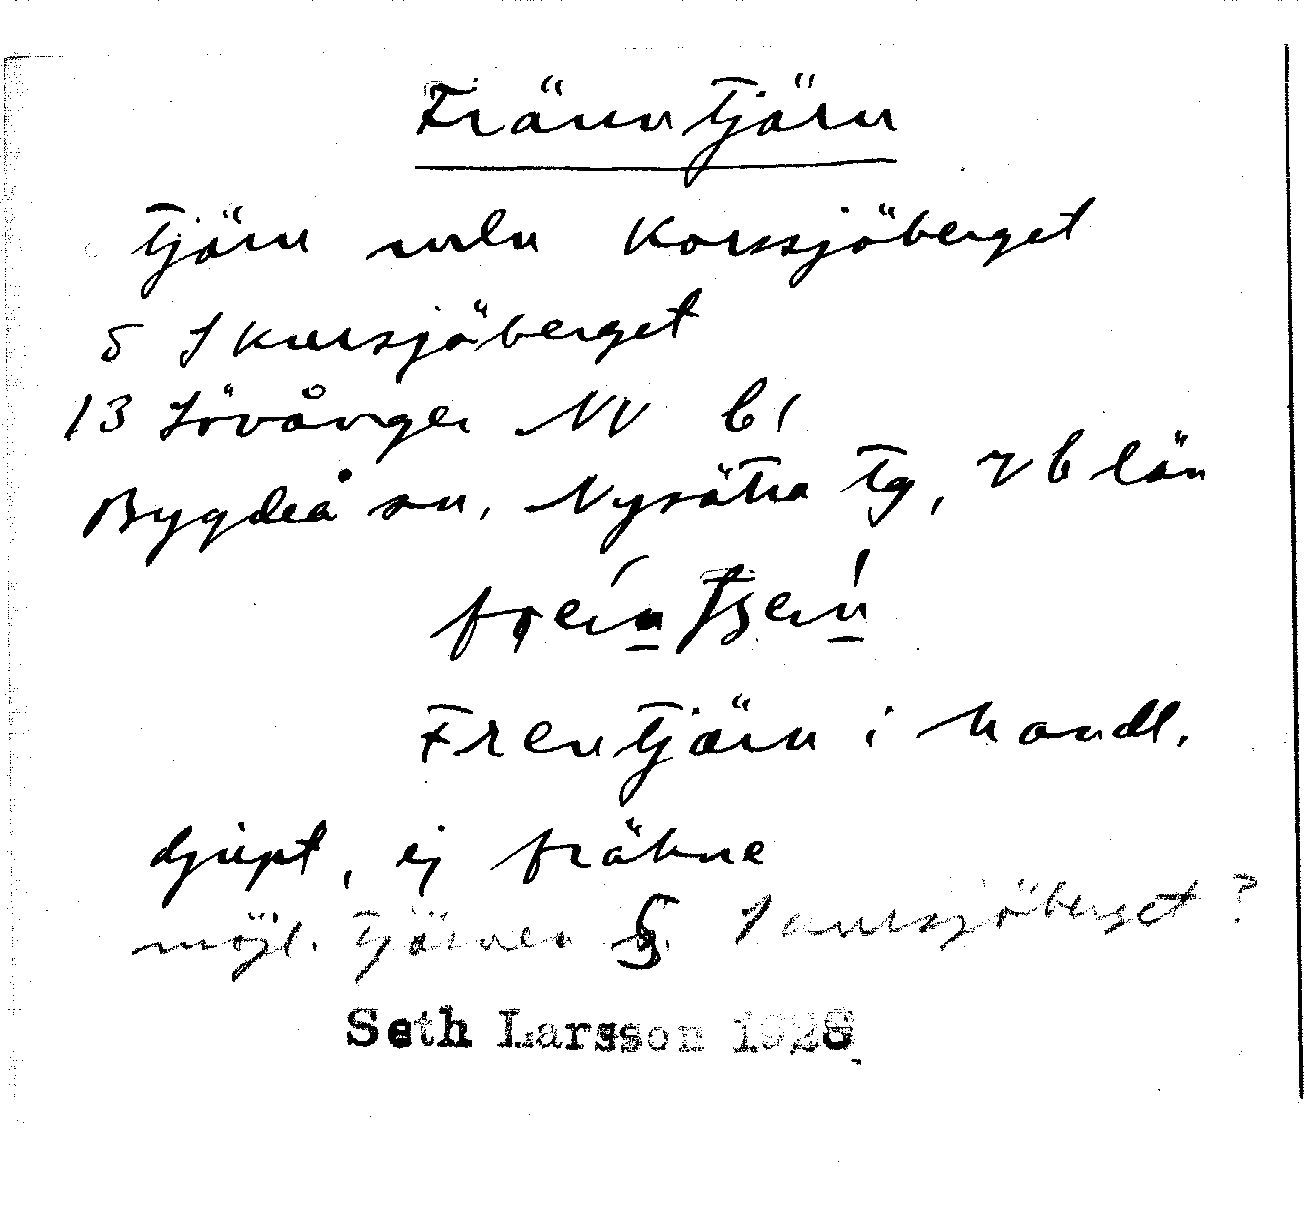 Fränntjärn
Tjärn nln Korssjöberget
5 Skursjöberget
13 Lövånger NV b1
Bygdeå sn, Nysätra tg, Vb län
Frentjärn i handl.
djupt, ej fräkne
möjl. Tjärnen S. Skursjöberget?
Seth Larsson 1928